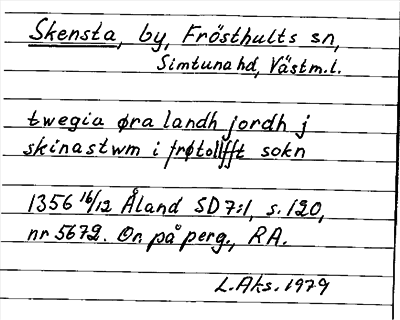 Skensta, by, Frösthults sn,
Simtuna hd, Västm.l.
twegia øra landh jordh j
skinastwm i frøtollfft sokn
1356 16/12 Åland SD 7:1, s. 120,
nr 5672. Or. på perg., RA.
L.Aks. 1979